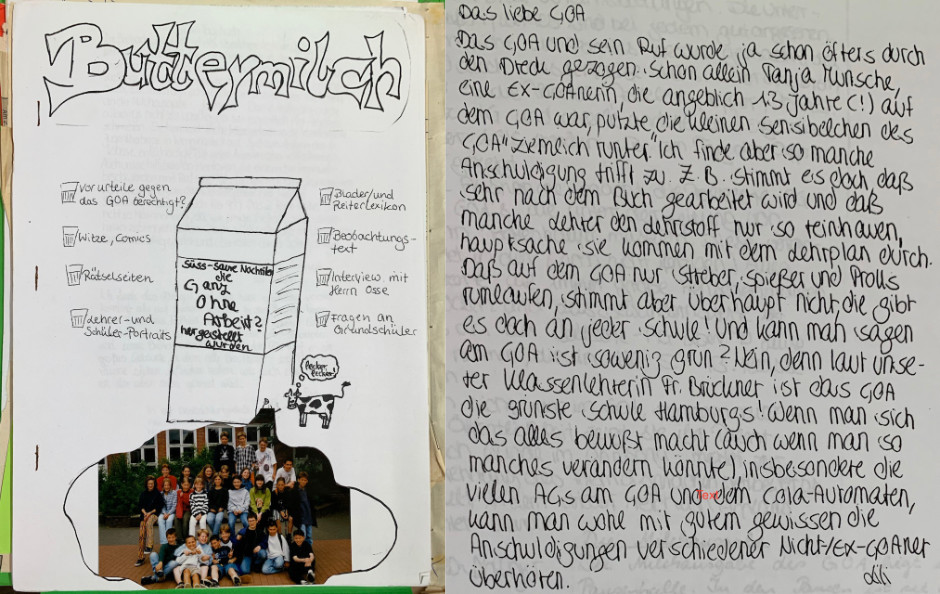 Buttermilch
Vorurteile gegen
das GOA berechtigt?
Witze, Comics
Rätselseiten
Lehrer- und
Schüler-Portraits
süss-saure Nachrichten
die
Ganz
Ohne
Arbeit?
hergestellt
wurden
Blader/und
Reiterlexikon
Beobachtungs-
text
Interview mit
Herrn Osse
Fragen an
Grundschüler
lecker!
Das liebe GOA
Das GOA und sein Ruf wurde ja schon öfters durch
den Dreck gezogen. Schon allein Tanja Munsche,
eine EX-GOAnerin, die angeblich 13 Jahre (!) auf
dem GOA war, putzte „die kleinen Sensibelchen des
GOA" ziemlich runter. Ich finde aber so manche
Anschuldigung trifft zu. Z.B. stimmt es doch, daß
sehr nach dem Buch gearbeitet wird und daß
manche Lehrer den Lehrstoff nur so reinhauen,
hauptsache sie kommen mit dem Lehrplan durch.
Daß auf dem GOA nur Streber, Spießer und Prolls
rumlaufen, stimmt aber überhaupt nicht, die gibt
es doch an jeder Schule! Und kann man sagen
am GOA ist sowenig grün? Nein, denn laut unse-
rer Klassenlehrerin Fr. Brückner ist das GOA
die grünste Schule Hamburgs! Wenn man sich
das alles bewußt macht (auch wenn man so
manches verändern könnte), insbesondere die
vielen AGs am GOA und dem Cola-Automaten,
kann man wohl mit gutem gewissen die
Anschuldigungen verschiedener Nicht-/Ex-GOAner
überhören.
Lili